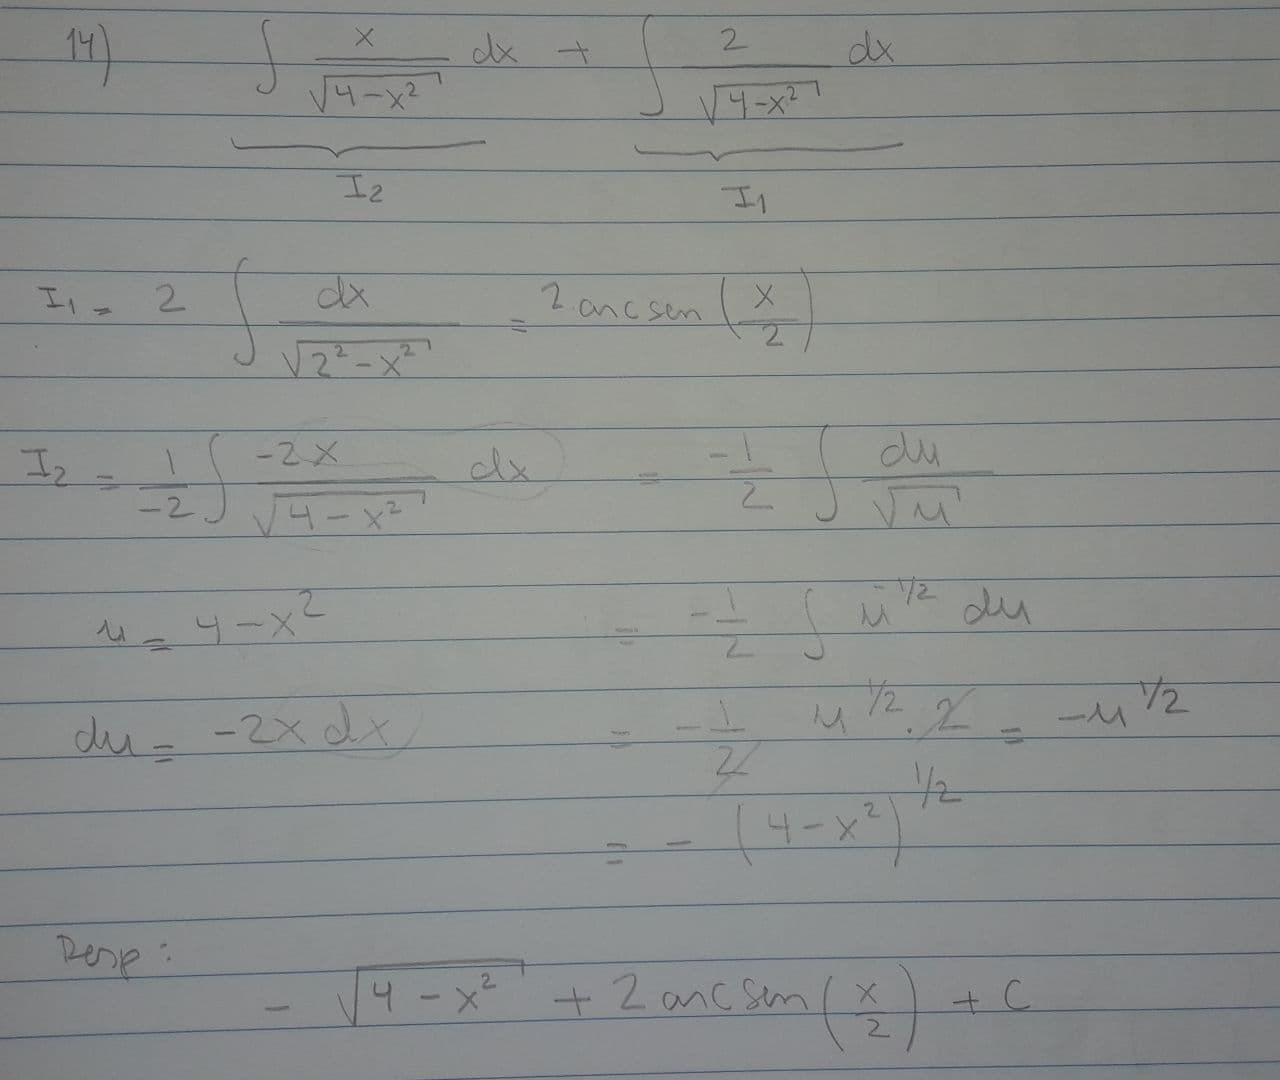 14) ∫ x/√(4-x²) dx + ∫ 2/√(4-x²) dx
I₂ I₁
I₁ = 2 ∫ dx/√(2²-x²) = 2 arcsen (x/2)
I₂ = 1/-2 ∫ -2x/√(4-x²) dx = -1/2 ∫ du/√u
u = 4-x² = -1/2 ∫ u^(-1/2) du
du = -2x dx = -1/2 u^(1/2) . 2 = -u^(1/2)
= - (4-x²)^(1/2)
Resp:
- √(4-x²) + 2 arcsen (x/2) + C